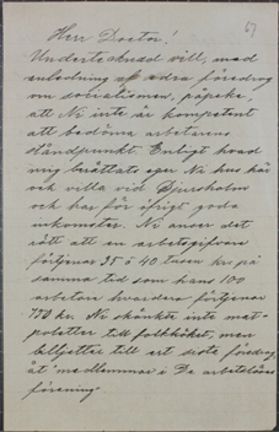 67
Herr Doctor!
Undertecknad vill, med
anledning af edra föredrag
om socialismen, påpeka,
att Ni inte är kompetent
att bedöma arbetarens
ståndpunkt. Enligt hvad
mig berättats eger Ni hus här
och villa vid Djursholm
och har för öfrigt goda
inkomster. Ni anser det
rätt att en arbetsgifvare
förtjenar 35 à 40 tusen kr. på
samma tid som hans 100
arbetare hvardera förtjenar
770 kr. Ni skänkte inte mat-
poletter till folkköket, men
biljetter till ert sista föredrag
åt medlemmar i De arbetslösas
förening.